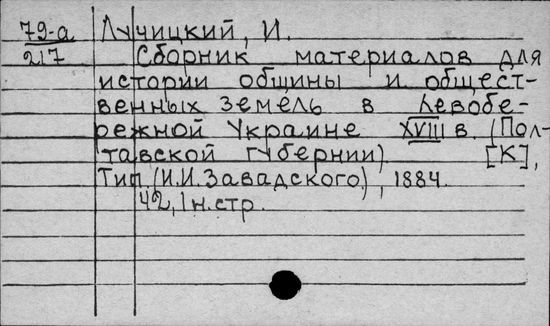 79-а Лучицкий, И.
217 Сборник материалов для
истории общины и общест-
венных земель в Левобе-
режной Украине XVIII в. (Пол-
тавской губернии). [К],
Тип. (И.И. Завадского), 1884.
42, 1 н. стр.